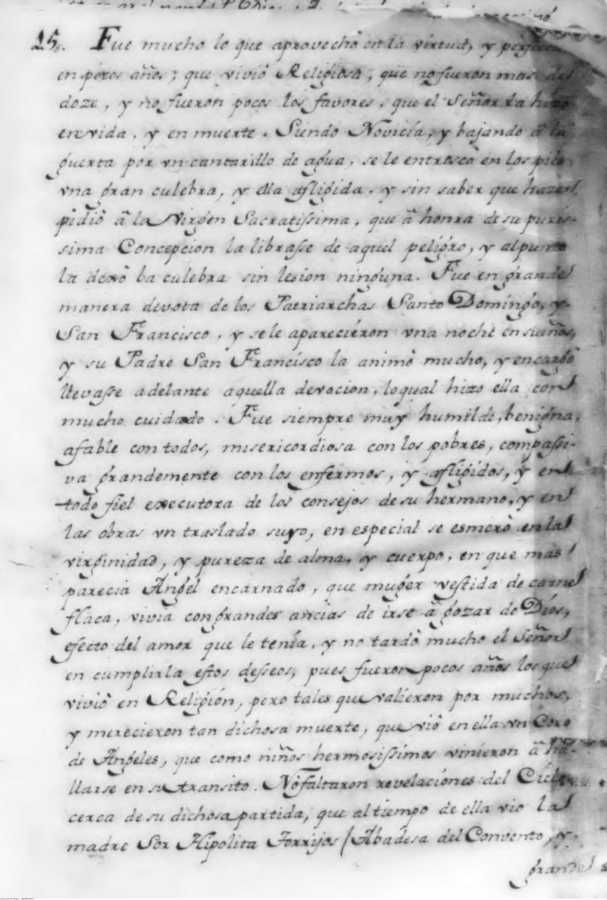 25. Fue mucho lo que aprovechò en la virtud, y
en pocos años; que vivió Religiosa, que no fueron mas de
doze, y no fueron pocos los favores, que el Señor la hizo
en vida, y en muerte. Siendo Novicia, y bajando â la
puerta por vn cantarillo de agua, se le entroscò en los pies
vna gran culebra, y ella afligida, y sin saber que hazer
pidiò â la Virgen Sacratissima, que â honra de su puris-
sima Concepcion la librasse de aquel peligro, y al punto
la dexò la culebra sin lesion ninguna. Fue en grande
manera devota de los Patriarchas Santo Domingo, y
San Francisco, y se le aparecieron vna noche en sueños,
y su Padre San Francisco la animò mucho, y encargò
llevasse adelante aquella devocion, lo qual hizo ella con
mucho cuidado. Fue siempre muy humilde, benigna,
afable con todos, misericordiosa con los pobres, compassi-
va grandemente con los enfermos, y afligidos, y en
todo fiel executora de los consejos de su hermano, y en
las obras vn traslado suyo, en especial se esmerò en la
virginidad, y pureza de alma, y cuerpo, en que mas
parecia Angel encarnado, que muger vestida de carne
flaca, vivia con grandes ancias de irse â gozar de Dios,
efecto del amor que le tenia, y no tardò mucho el Señor
en cumplirla estos desseos, pues fueron pocos años los que
vivió en Religion, pero tales que valieron por muchos,
y merecieron tan dichosa muerte, que viò en ella vn Coro
de Angeles, que como niños hermosissimos vinieron â ha-
llarse en su transito. No faltaron revelaciones del Cielo
cerca de su dichosa partida, que al tiempo de ella vio la
madre Sor Hipolita Torrijos (Abadesa del Convento, y
grande